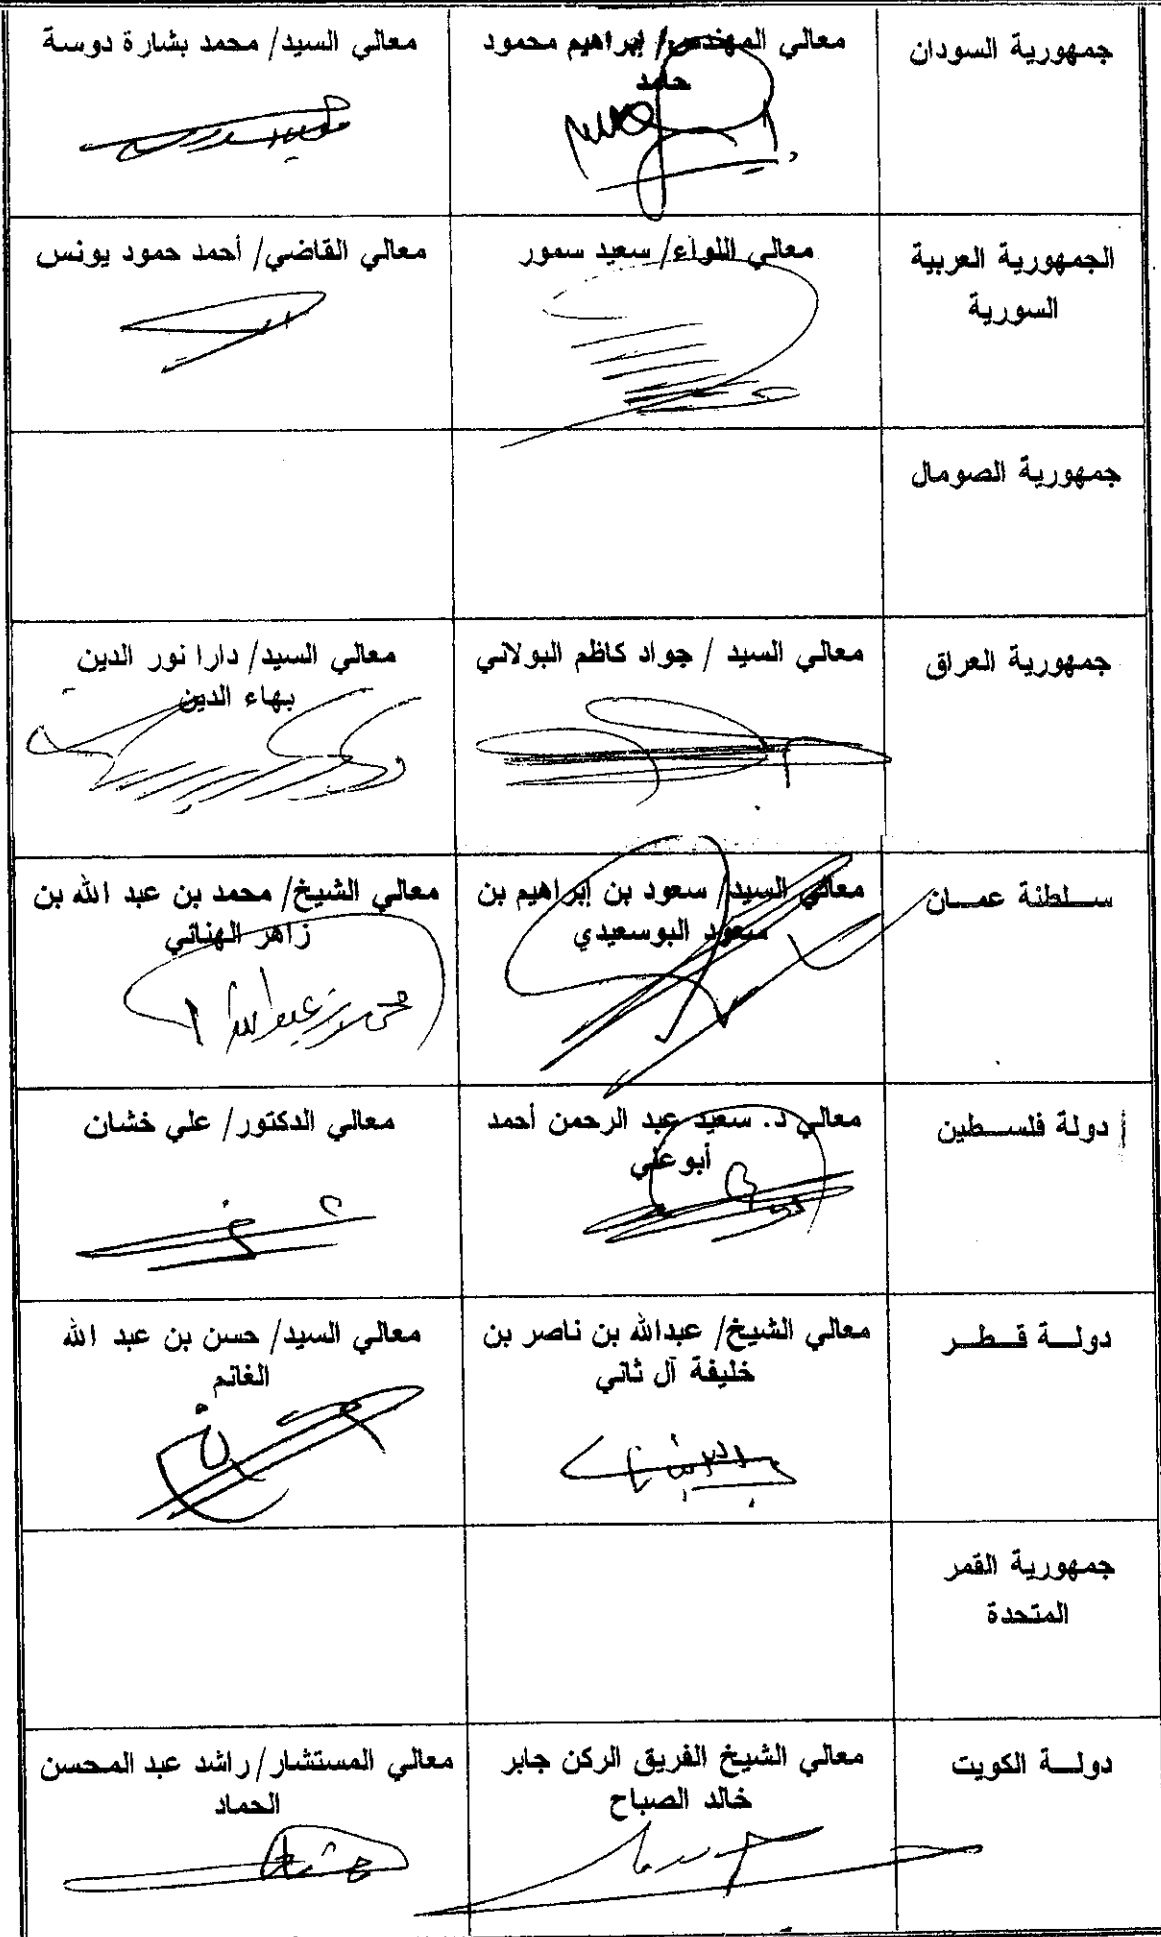 جمهورية السودان
معالي المهندس/ إبراهيم محمود
حامد
معالي السيد/ محمد بشارة دوسة
الجمهورية العربية
السورية
معالي اللواء/ سعيد سمور
معالي القاضي/ أحمد حمود يونس
جمهورية الصومال
جمهورية العراق
معالي السيد / جواد كاظم البولاني
معالي السيد/ دارا نور الدين
بهاء الدين
ســلطنة عمــان
معالي السيد/ سعود بن إبراهيم بن
سعود البوسعيدي
معالي الشيخ/ محمد بن عبد الله بن
زاهر الهنائي
دولة فلســطين
معالي د. سعيد عبد الرحمن أحمد
أبو علي
معالي الدكتور/ علي خشان
دولــة قــطــر
معالي الشيخ/ عبدالله بن ناصر بن
خليفة آل ثاني
معالي السيد/ حسن بن عبد الله
الغانم
جمهورية القمر
المتحدة
دولــة الكويت
معالي الشيخ الفريق الركن جابر
خالد الصباح
معالي المستشار/ راشد عبد المحسن
الحماد